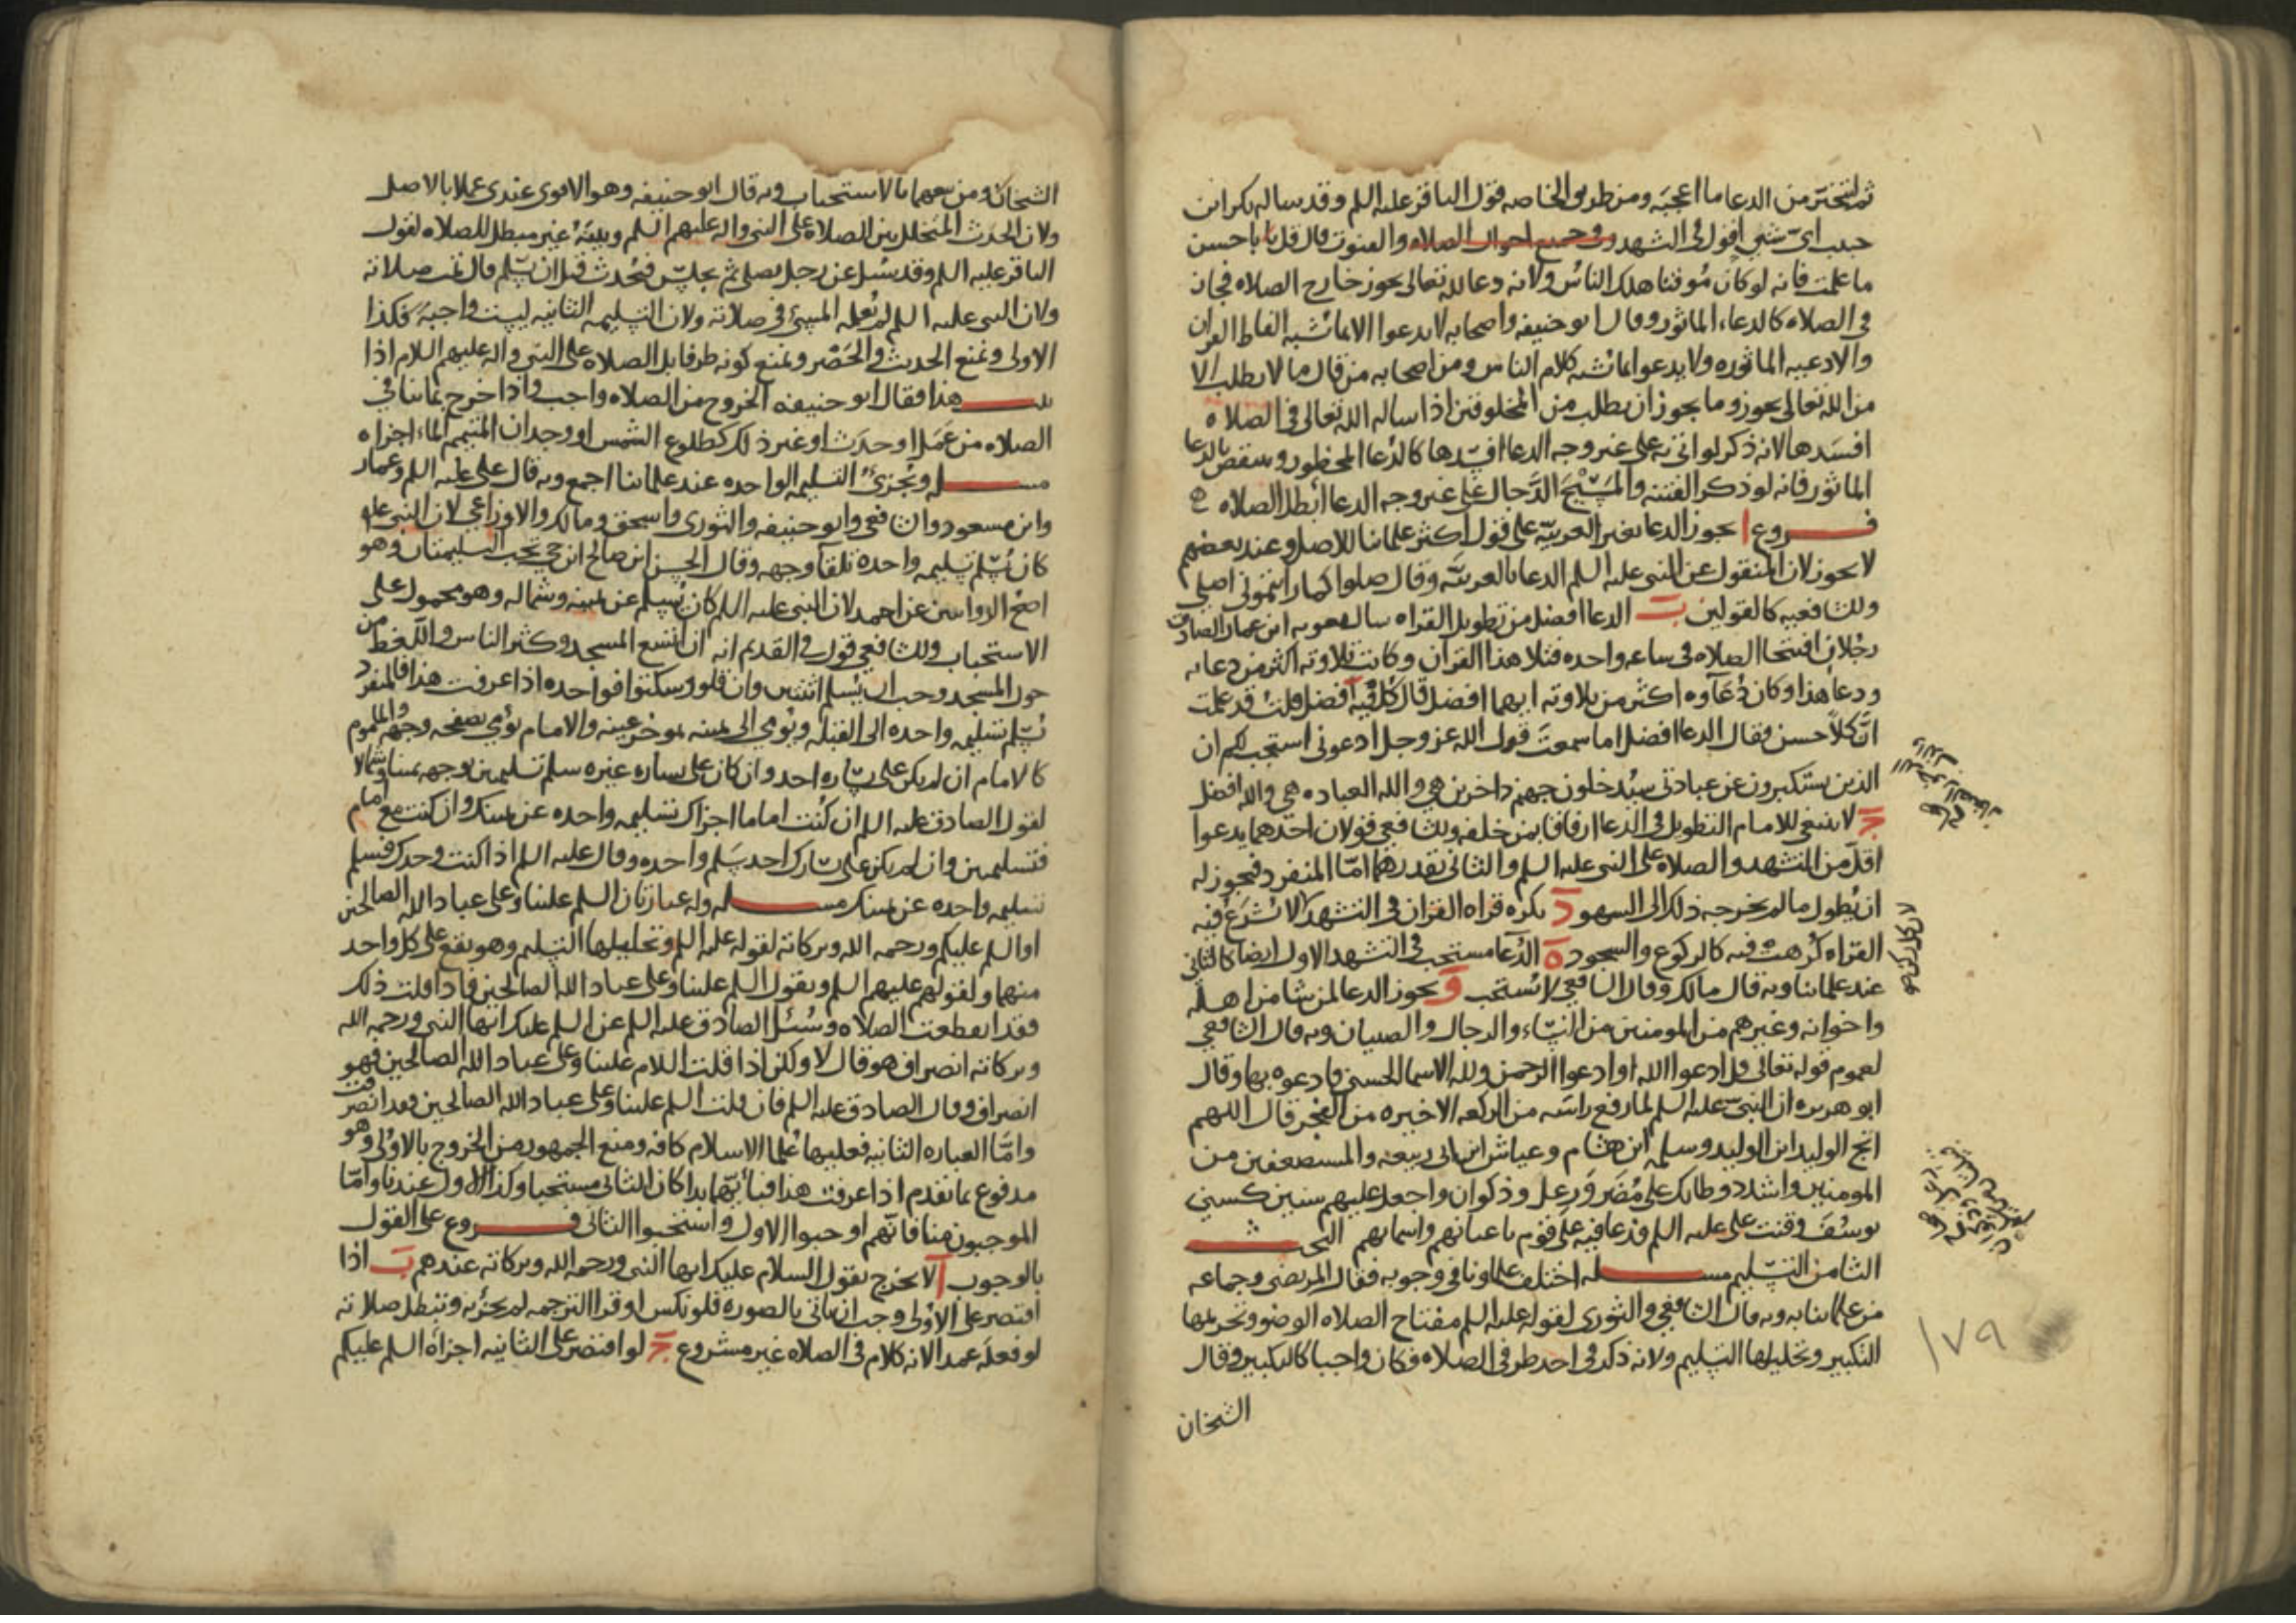 ثم ليتخير من الدعا ما اعجبه ومن طريق الخاصه قول الباقر عليه السلم وقد ساله بكر ابن
حبيب ائ شي اقول في التشهد وفي جميع احوال الصلاه والقنوت قال قل باحسن
ما علمت فانه لو كان موقتا هلك الناس ولانه دعا لله تعالى يجوز خارج الصلاه فجاز
في الصلاه كالدعاء الماثور وقال ابو حنيفه واصحابه لا يدعوا الا بما يشبه الفاظ القران
والادعيه الماثوره ولا يدعوا بما يشبه كلام الناس ومن اصحابه من قال ما لا يطلب الا
من الله تعالى يجوز وما يجوز ان يطلب من المخلوقين اذا ساله الله تعالى في الصلاه
افسدها لانه ذكر لو اتى به على غير وجه الدعا افسدها كالدعا المحظور وينتقض بالدعا
الماثور فانه لو ذكر الفتنه والمسيح الدجال على غير وجه الدعا ابطل الصلاه
فروع ا يجوز الدعا بغير العربيه على قول اكثر علمائنا للاصل وعند بعضهم
لا يجوز لان المنقول عن النبي عليه السلم الدعا بالعربيه وقال صلوا كما رايتموني اصلي
وللشافعيه كالقولين ب الدعا افضل من تطويل القراه سال معويه ابن عمار الصادق
رجلان افتتحا الصلاه في ساعه واحده فتلا هذا القران وكانت تلاوته اكثر من دعائه
ودعا هذا وكان دعآوه اكثر من تلاوته ايهما افضل قال كل فيه افضل قلت قد علمت
ان كلا حسن فقال الدعا افضل اما سمعت قول الله عز وجل ادعوني استجب لكم ان
الذين يستكبرون عن عبادتي سيدخلون جهنم داخرين هي والله العباده هي والله افضل
ج لا ينبغي للامام التطويل في الدعا ارفاقا بمن خلفه وللشافعي قولان احدهما يدعوا
اقل من التشهد والصلاه على النبي عليه السلم والثاني بقدرهما اما المنفرد فيجوز له
ان يطول ما لم يخرجه ذلك الى السهو د يكره قراه القران في التشهد لا يشرع فيه
القراه كرهت فيه كالركوع والسجود ه الدعا مستحب في التشهد الاول ايضا كالثاني
عند علمائنا وبه قال مالك وقال الشافعي لا يستحب و يجوز الدعا لمن شا من اهله
واخوانه وغيرهم من المومنين من النساء والرجال والصبيان وبه قال الشافعي
لعموم قوله تعالى قل ادعوا الله او ادعوا الرحمن ولله الاسما الحسنى فادعوه بها وقال
ابو هريره ان النبي عليه السلم لما رفع راسه من الركعه الاخيره من الفجر قال اللهم
انج الوليد ابن الوليد وسلمه ابن هشام وعياش ابن ابي ربيعه والمستضعفين من
المومنين واشدد وطاتك على مضر ورعل وذكوان واجعل عليهم سنين كسني
يوسف وقنت علي عليه السلم فدعا فيه على قوم باعيانهم واسمائهم البحث
الثامن التسليم مسله اختلف علماونا في وجوبه فقال المرتضى وجماعه
من علمائنا به وبه قال الشافعي والثوري لقوله عليه السلم مفتاح الصلاه الوضو وتحريمها
التكبير وتحليلها التسليم ولانه ذكر في احد طرفي الصلاه فكان واجبا كالتكبير وقال
الشيخان
لان كل ركن هو
١٧٩
الشيخان ومن تبعهما بالاستحباب وبه قال ابو حنيفه وهو الاقوى عندي عملا بالاصل
ولان الحدث المتخلل بين الصلاه على النبي واله عليهم السلم وبينه غير مبطل للصلاه لقول
الباقر عليه السلم وقد سئل عن رجل يصلي ثم يجلس فيحدث قبل ان يسلم قال تمت صلاته
ولان النبي عليه السلم لم يعلمه المسيئ في صلاته ولان التسليمه الثانيه ليست واجبة فكذا
الاولى ونمنع الحديث والحصر ونمنع كونه طرفا بل الصلاه على النبي واله عليهم السلام اذا
ثبت هذا فقال ابو حنيفه الخروج من الصلاه واجب واذا خرج بما ينافي
الصلاه من عمل او حدث او غير ذلك كطلوع الشمس او وجدان المتيمم الماء اجزاه
مسله ويجزئ التسليمه الواحده عند علمائنا اجمع وبه قال علي عليه السلم وعمار
وابن مسعود والشافعي وابو حنيفه والثوري واسحق ومالك والاوزاعي لان النبي عليه
كان يسلم تسليمه واحده تلقآ وجهه وقال الحسن ابن صالح ابن حي تجب التسليمتان وهو
اصح الروايتين عن احمد لان النبي عليه السلم كان يسلم عن يمينه وشماله وهو محمول على
الاستحباب وللشافعي قول في القديم انه ان اتسع المسجد وكثر الناس واللغط من
حول المسجد وجب ان يسلم اثنتين وان قلو وسكتوا فواحده اذا عرفت هذا فالمنفرد
يسلم تسليمه واحده الى القبلة ويومي الى يمينه بموخر عينه والامام يومي بصفحه وجهه والماموم
كالامام ان لم يكن على يساره احد وان كان على يساره غيره سلم تسليمتين بوجهه يمينا وشمالا
لقول الصادق عليه السلم ان كنت اماما اجزاك تسليمه واحده عن يمينك وان كنت مع امام
فتسليمتين وان لم يكن على يسارك احد سلم واحده وقال عليه السلم اذا كنت وحدك فسلم
تسليمه واحده عن يمينك مسله وله عبارتان السلم علينا وعلى عباد الله الصالحين
او السلم عليكم ورحمه الله وبركاته لقوله عليه السلم وتحليلها التسليم وهو يقع على كل واحد
منهما ولقولهم عليهم السلم ويقول السلم علينا وعلى عباد الله الصالحين فاذا قلت ذلك
فقد انقطعت الصلاه وسئل الصادق عليه السلم عن السلم عليك ايها النبي ورحمه الله
وبركاته انصراف هو قال لا ولكن اذا قلت السلام علينا وعلى عباد الله الصالحين فهو
انصراف وقال الصادق عليه السلم فان قلت السلم علينا وعلى عباد الله الصالحين فقد انصرفت
واما العباره الثانيه فعليها علما الاسلام كافه ومنع الجمهور من الخروج بالاولى وهو
مدفوع بما تقدم اذا عرفت هذا فبايهما بدا كان الثاني مستحبا وكذا الاول عندنا واما
الموجبون منا فانهم اوجبوا الاول واستحبوا الثاني فروع على القول
بالوجوب ا لا يخرج بقول السلام عليك ايها النبي ورحمه الله وبركاته عندهم ب اذا
اقتصر على الاولى وجب ان ياتي بالصوره فلو نكس او قرا الترجمه لم يجزئه وتبطل صلاته
لو فعله عمدا لانه كلام في الصلاه غير مشروع ج لو اقتصر على الثانيه اجزاه السلم عليكم